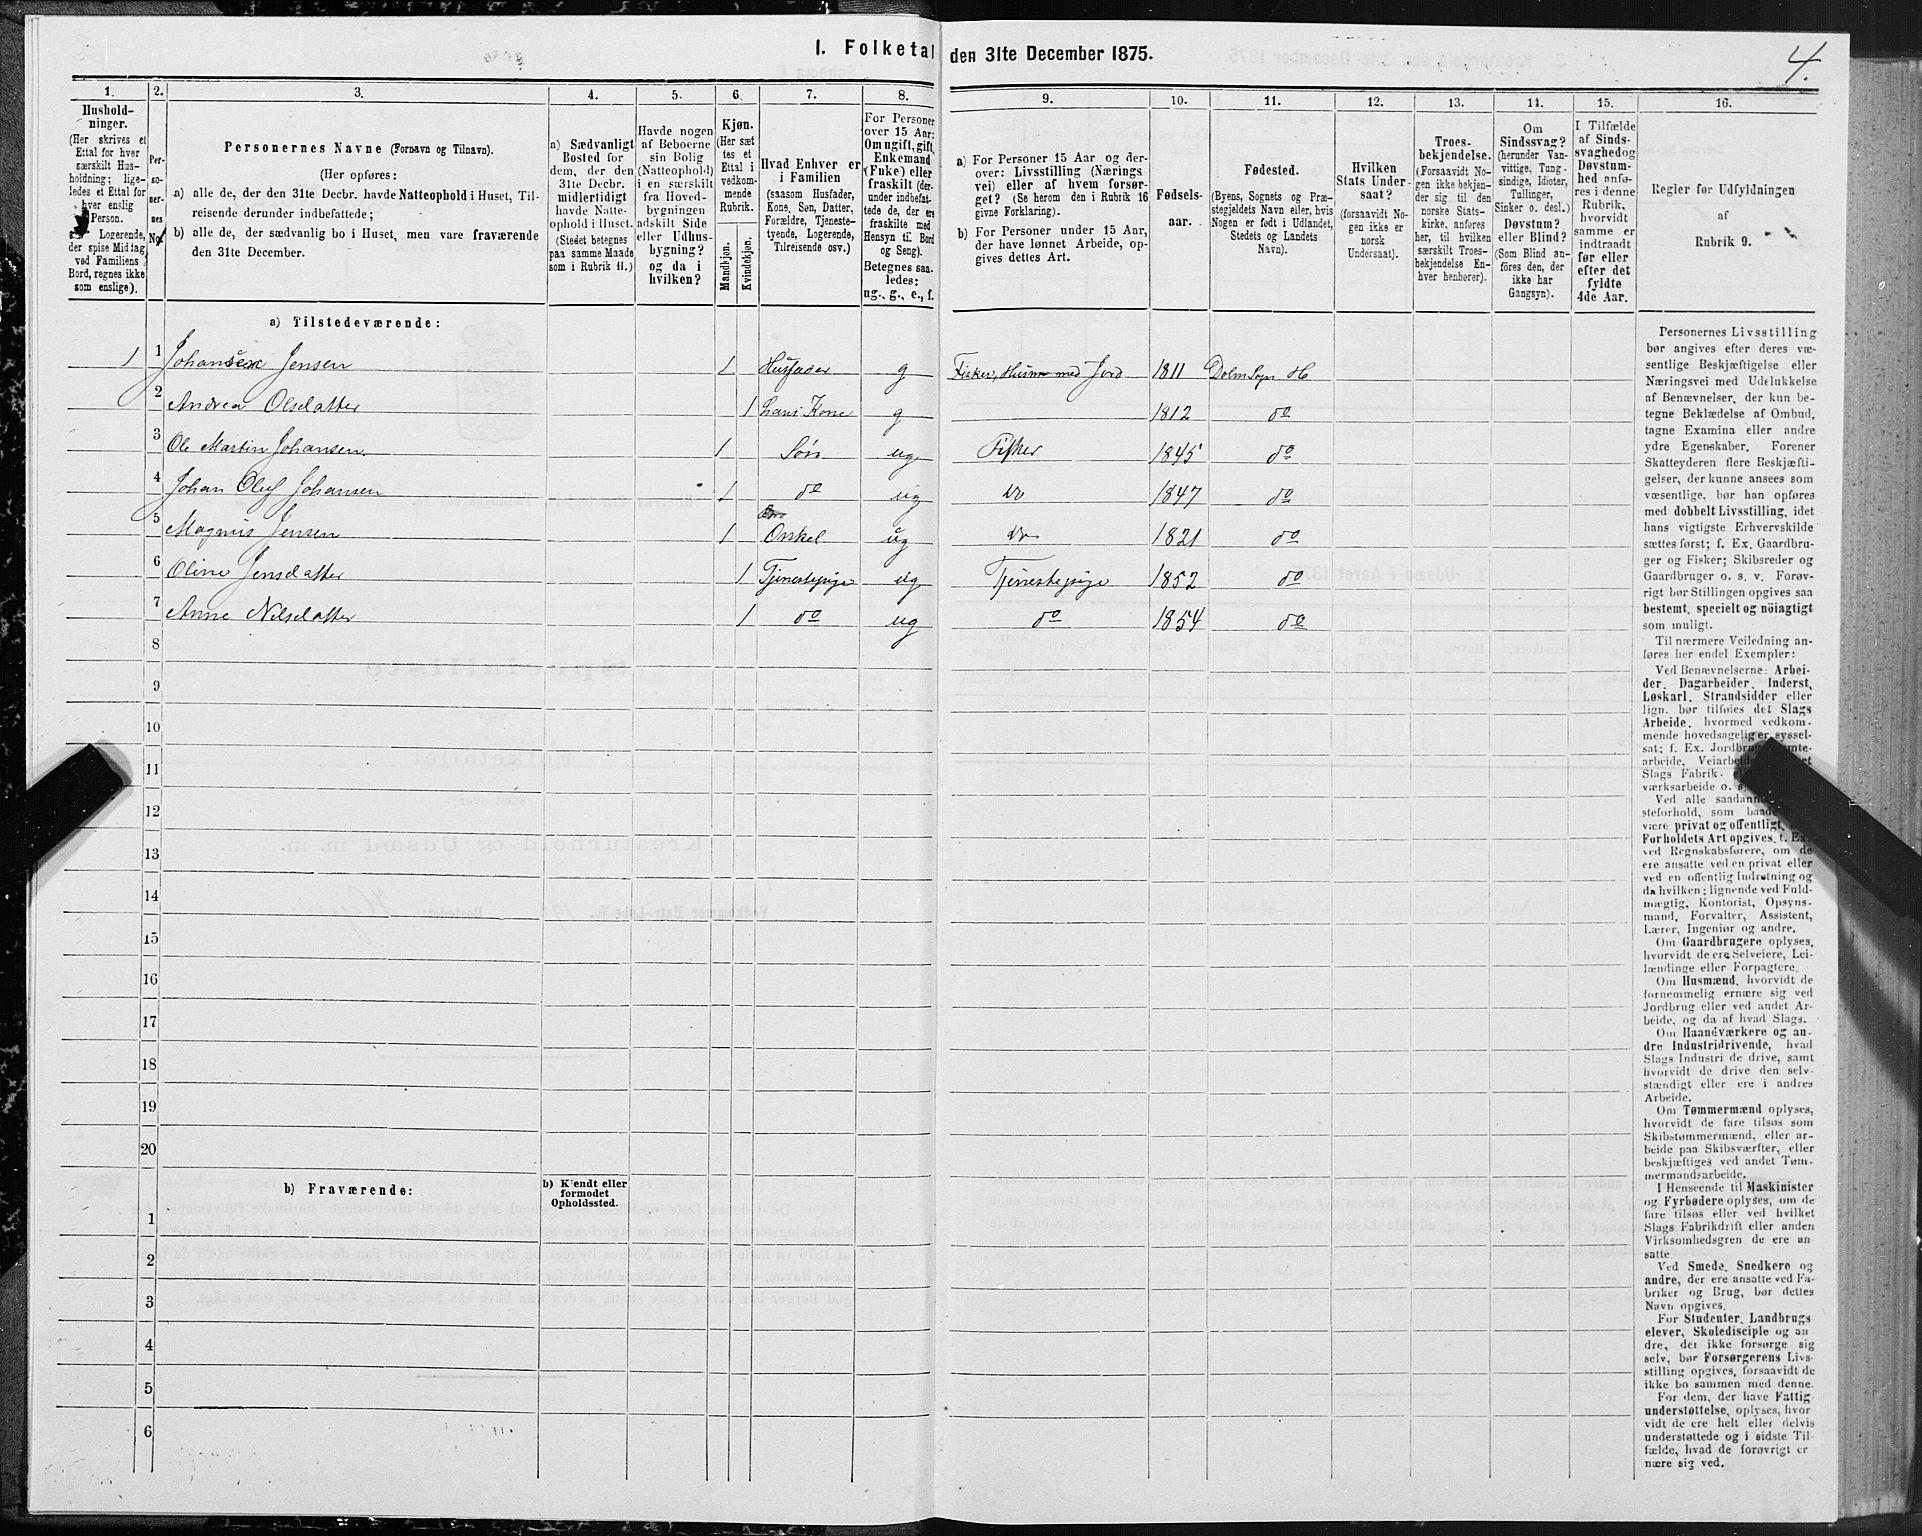 I. Folketal den 31te December 1875.
4.
1.
Hushold-
ninger.
(Her skrives et
Ettal for hver
særskilt Hus-
holdning; lige-
ledes et Ettal for
hver enslig
Person.
Logerende,
der spise Middag
ved Familiens
Bord, regnes ikke
som enslige).
2.
Per-
so-
ner-
nes
No.
3.
Personernes Navne (Fornavn og Tilnavn).
(Her opføres:
a) alle de, der den 31te Decbr. havde Natteophold i Huset, Til-
reisende derunder indbefattede;
b) alle de, der sædvanlig bo i Huset, men vare fraværende
den 31te December.
4.
a) Sædvanligt
Bosted for
dem, der den
31te Decbr.
midlertidigt
havde Natte-
ophold i Huset.
(Stedet betegnes
paa samme Maade
som i Rubrik 11.)
5.
Havde nogen
af Beboerne
sin Bolig
(Natteophold)
i en særskilt
fra Hoved-
bygningen
adskilt Side
eller Udhus-
bygning?
og da i
hvilken?
6.
Kjøn.
(Her sæt
tes et
Ettal i
vedkom-
mende
Rubrik.
Mandkjøn.
Kvindekjøn.
7.
Hvad Enhver er
i Familien
(saasom Husfader,
Kone, Søn, Datter,
Forældre, Tjeneste-
tyende, Logerende,
Tilreisende osv.)
8.
For Personer
over 15 Aar:
Om ugift, gift,
Enkemand
(Enke) eller
fraskilt (der-
under indbefat-
tede de, der ere
fraskilte med
Hensyn til Bord
og Seng).
Betegnes saa-
ledes:
ug., g., e., f.
9.
a) For Personer 15 Aar og der-
over: Livsstilling (Nærings
vei) eller af hvem forsør-
get? (Se herom den i Rubrik 16
givne Forklaring).
b) For Personer under 15 Aar,
der have lønnet Arbeide, op-
gives dettes Art.
10.
Fødsels-
aar.
11.
Fødested.
(Byens, Sognets og Præ-
stegjeldets Navn eller, hvis
Nogen er født i Udlandet,
Stedets og Landets
Navn).
12.
Hvilken
Stats Under-
saat?
(forsaavidt No-
gen ikke er
norsk
Undersaat).
13.
Troes-
bekjendelse.
(Forsaavidt No-
gen ikke bekjen-
der sig til den
norske Stats-
kirke, anføres
her, til hvilken
særskilt Troes-
bekjendelse En-
hver henhører).
14.
Om
Sindssvag?
(herunder Van-
vittige, Tung-
sindige, Idioter,
Tullinger,
Sinker o. desl.)
Døvstum?
eller Blind?
(Som Blind an-
føres den, der
ikke har
Gangsyn).
15.
I Tilfælde
af Sinds-
svaghed og
Døvstum-
hed anfø-
res i denne
Rubrik,
hvorvidt
samme er
indtraadt
før eller
efter det
fyldte
4de Aar.
16.
Regler for Udfyldningen
af
Rubrik 9.
a) Tilstedeværende:
1 1 Johan Jensen 1 Husfader g Fisker, Husm med Jord 1811 Dolm Sogn H
2 Andrea Olsdatter 1 hans Kone g 1812 do
3 Ole Martin Johansen. 1 Søn ug Fisker 1845 do
4 Johan Oluf Johansen 1 do ug do 1847 do
5 Magnus Jensen 1 Onkel ug do 1821 do
6 Oline Jensdatter 1 Tjenestepige ug Tjenestepige 1852 do
7 Anne Nilsdatter 1 do ug do 1854 do
8
9
10
11
12
13
14
15
16
17
18
19
20
b) Fraværende:
b) Kjendt eller
formodet
Opholdssted.
1
2
3
4
5
6
Personernes Livsstilling
bør angives efter deres væ-
sentlige Beskjæftigelse eller
Næringsvei med Udelukkelse
af Benævnelser, der kun be-
tegne Beklædelse af Ombud,
tagne Examina eller andre
ydre Egenskaber. Forener
Skatteyderen flere Beskjæfti-
gelser, der kunne ansees som
væsentlige, bør han opføres
med dobbelt Livsstilling, idet
hans vigtigste Erhvervskilde
sættes først; f. Ex. Gaardbru-
ger og Fisker; Skibsreder og
Gaardbruger o. s. v. Forøv-
rigt bør Stillingen opgives saa
bestemt, specielt og nöiagtigt
som muligt.
Til nærmere Veiledning an-
føres her endel Exempler:
Ved Benævnelserne: Arbei-
der, Dagarbeider, Inderst,
Løskarl, Strandsidder eller
lign. bør tilføies det Slags
Arbeide, hvormed vedkom-
mende hovedsagelig er syssel-
sat; f. Ex. Jordbrug
arbeide,
Slags Fabrik-
værksarbeide o. s.
Ved alle saadanne
steforhold, som baade
være privat og offentligt,
Forholdets Art opgives, t. Ex.
ved Regnskabsførere, om de
ere ansatte ved en privat eller
ved en offentlig Indretning og
da hvilken; lignende ved Fuld-
mægtig, Kontorist, Opsyns-
mand, Forvalter, Assistent,
Lærer, Ingeniør og andre.
Om Gaardbrugere oplyses,
hvorvidt de ere Selveiere, Lei-
lændinge eller Forpagtere.
Om Husmænd, hvorvidt de
fornemmelig ernære sig ved
Jordbrug eller ved andet Ar-
beide, og da af hvad Slags.
Om Haandværkere og an-
dre Industridrivende, hvad
Slags Industri de drive, samt
hvorvidt de drive den selv-
stændigt eller ere i andres
Arbeide.
Om Tømmermænd oplyses,
hvorvidt de fare tilsøs som
Skibstømmermænd, eller ar-
beide paa Skibsværfter, eller
beskjæftiges ved andet Tøm-
mermandsarbeide.
I Henseende til Maskinister
og Fyrbødere oplyses, om de
fare tilsøs eller ved hvilket
Slags Fabrikdrift eller anden
Virksomhedsgren de ere an-
satte
Ved Smede, Snedkere og
andre, der ere ansatte ved Fa-
briker og Brug, bør dettes
Navn opgives.
For Studenter, Landbrugs
elever, Skoledisciple og an-
dre, der ikke forsørge sig
selv, bør Forsørgerens Livs-
stilling opgives, forsaavidt de
ikke bo sammen med denne.
For dem, der have Fattig-
understøttelse, oplyses, hvor-
vidt de ere helt eller delvis
understøttede og i sidste Til-
fælde, hvad de forøvrigt er
nære sig ved.